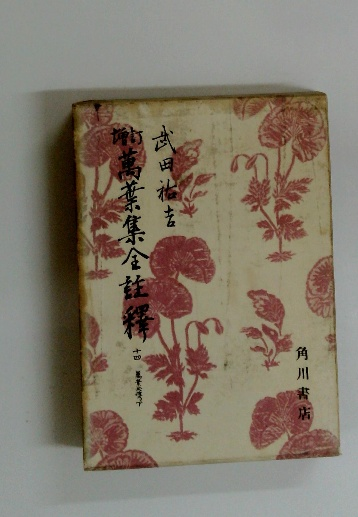 武田祐吉
増訂
萬葉集全註釋
十四
角川書店